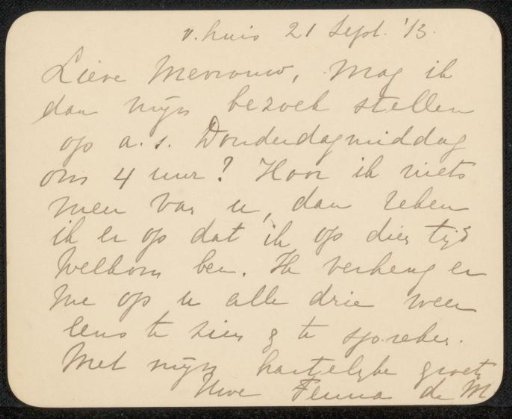 v. huis 21 Sept. '13.
Lieve Mevrouw, Mag ik
dan mijn bezoek stellen
op a. s. Donderdagmiddag
om 4 uur? Hoor ik niets
meer van u, dan reken
ik er op dat ik op dien tijd
welkom ben. Ik verheug er
me op u alle drie weer
eens te zien & te spreken.
Met mijn hartelijke groeten
Uwe Fenna de M